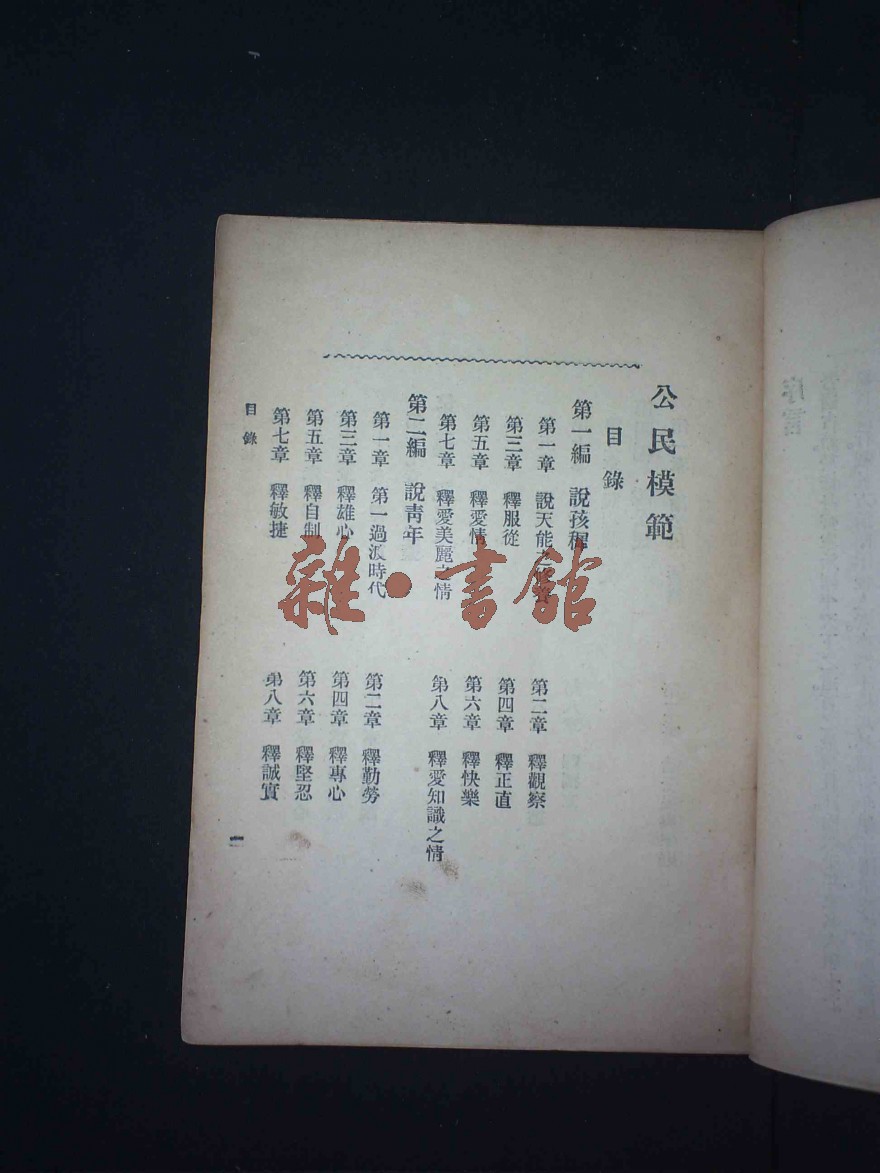 公民模範
目錄
第一編 說孩穉
第一章 說天能之
第二章 釋觀察
第三章 釋服從
第四章 釋正直
第五章 釋愛情
第六章 釋快樂
第七章 釋愛美麗之情
第八章 釋愛知識之情
第二編 說青年
第一章 第一過渡時代
第二章 釋勤勞
第三章 釋雄心
第四章 釋專心
第五章 釋自制
第六章 釋堅忍
第七章 釋敏捷
第八章 釋誠實
目錄
一
雜·書館